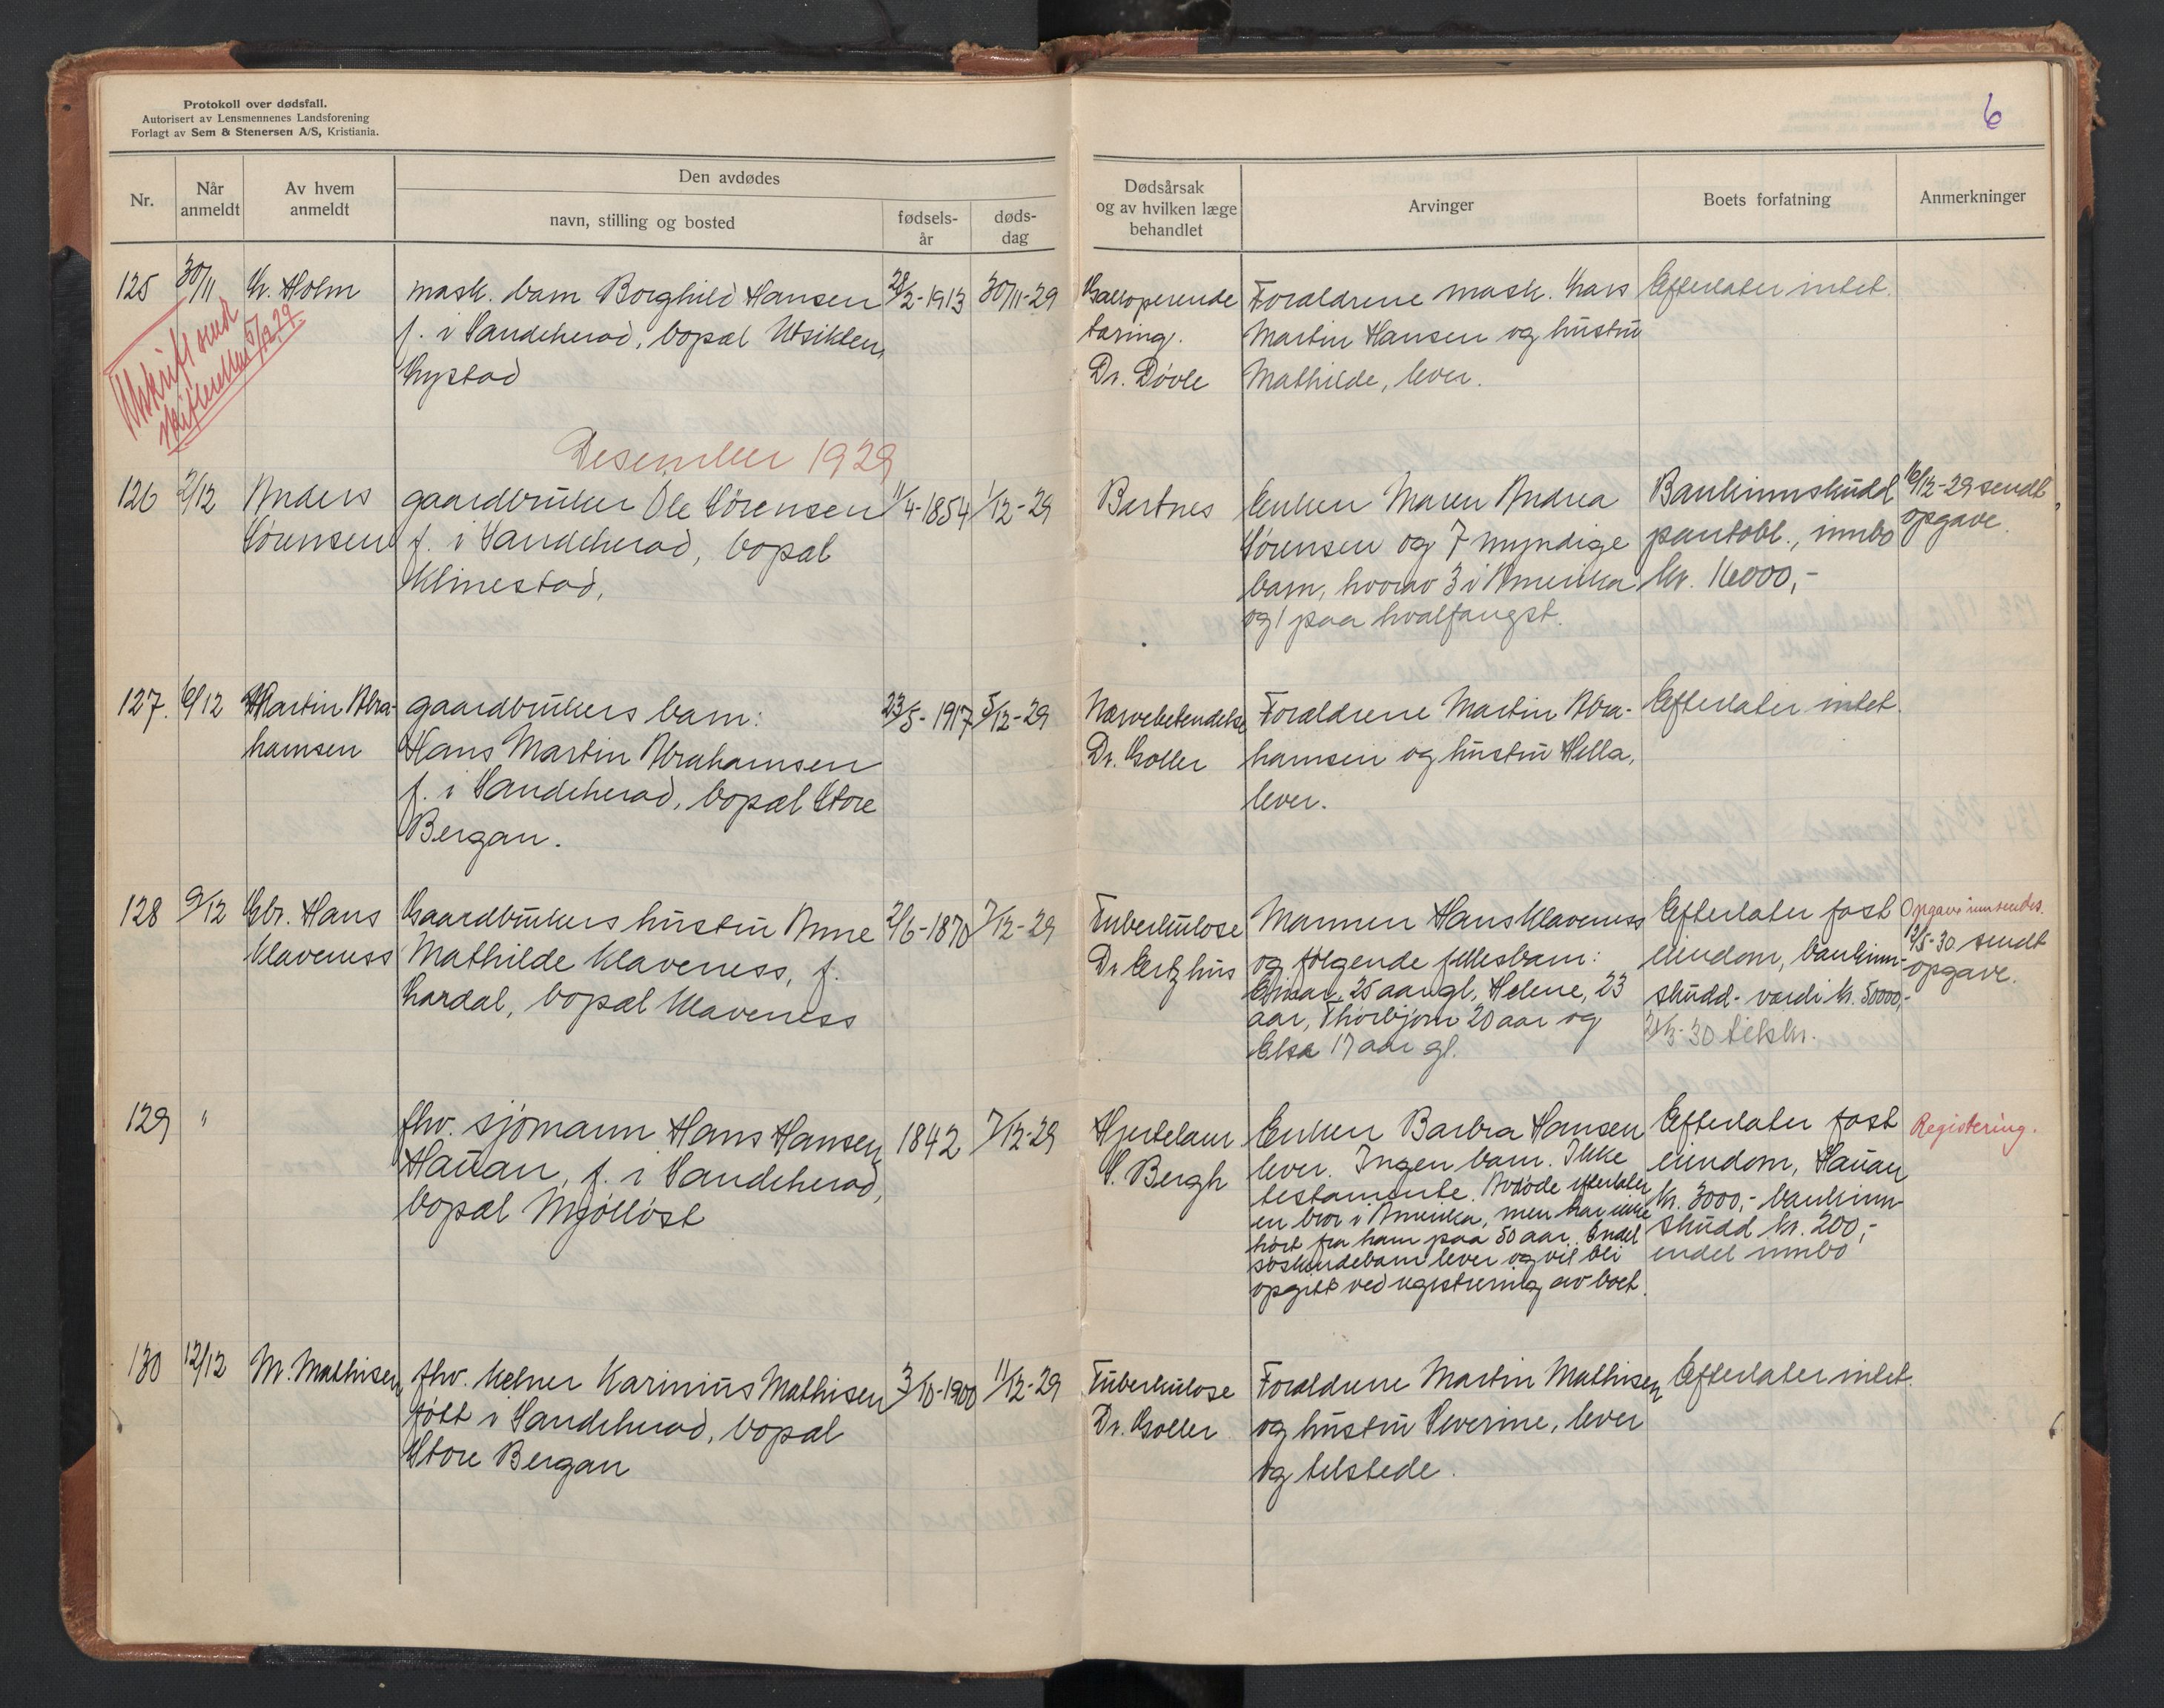 Protokoll over dødsfall.
Autorisert av Lensmennenes Landsforening
Forlagt av Sem & Stenersen A/S, Kristiania.
6
Nr.
Når anmeldt
Av hvem anmeldt
Den avdødes
navn, stilling og bosted
fødsels-år
døds-dag
Dødsårsak og av hvilken læge behandlet
Arvinger
Boets forfatning
Anmerkninger
125 30/11 Holm
mask. barn Borghild Hansen
f. i Sandeherad, bopæl Utsikten,
Nystad
/2-1913 30/11-29
Galloperende
tæring.
Dr. Døvle
Forældrene mask. Lars
Martin Hansen og hustru
Mathilde, lever.
Efterlater intet.
Utskrift send
skifteretten 5/12 29.
Desember 1929
126 2/12 Anders
Sørensen
gaardbruker Ole Sørensen
f. i Sandeherad, bopæl
Klinestad,
11/4-1854 1/12-29
Bartnes
Enken Maren Andrea
Sørensen og 7 myndige
barn, hvorav 3 i Amerika
og 1 paa hvalfangst.
Bankinnskudd
pantobl., innbo
kr. 16000,-
16/12-29 sendt
opgave.
127. 6/12 Martin Abra-
hamsen
gaardbrukers barn:
Hans Martin Abrahamsen
f. i Sandeherad, bopæl Store
Bergan.
23/5-1917 5/12-29
Nervebetendelse
Dr. Goller
Forældrene Martin Abra-
hamsen og hustru Hella,
lever.
Efterlater intet.
128 9/12 Gbr. Hans
Klaveness
Gaardbrukers hustru Anne
Mathilde Klaveness, f.
Lardal, bopæl Klaveness
2/6-1870 7/12-29
Tuberkulose
Dr.
Mannen Hans Klaveness
og følgende fellesbarn:
Einar, 25 aar gl., Helene, 23
aar, Thorbjørn 20 aar og
Elsa 17 aar gl.
Efterlater fast
eiendom, bankinn-
skudd - værdi kr. 50000,-
/3-30 tilskr.
Opgave innsendes.
/5-30 sendt
opgave.
129 "
fhv. sjømann Hans Hansen
Hauan, f. i Sandeherad,
bopæl Mjølløst
1842 7/12-29
Hjertelam
S. Bergh
Enken Barbra Hansen
lever. Ingen barn. Ikke
testamente. Avdøde efterlater
en bror i Amerika, men har ikke
hørt fra ham paa 50 aar. Endel
søskendebarn lever og vil bli
opgitt ved registrering av boet.
Efterlater fast
eiendom, Hauan
kr. 3000,- bankinn-
skudd kr. 200,-
endel innbo
Registering.
130 12/12 M. Mathisen
fhv. kelner Karinius Mathisen
født i Sandeherad, bopæl
Store Bergan
3/10-1900 11/12-29
Tuberkulose
Dr. Goller
Forældrene Martin Mathisen
og hustru Severine, lever
og tilstede.
Efterlater intet.